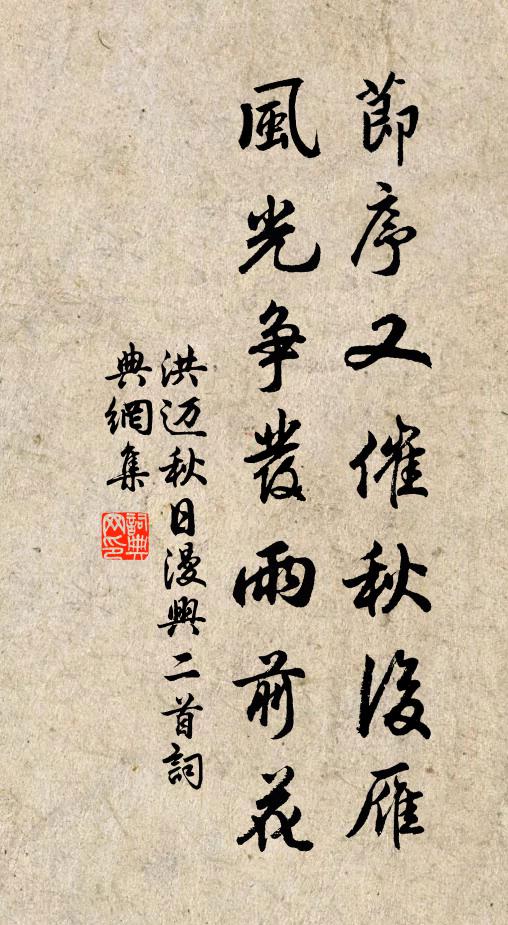 節序又催秋後雁
風光争發雨前花
洪迈秋日漫興二首詞
典網集
詞典
网印